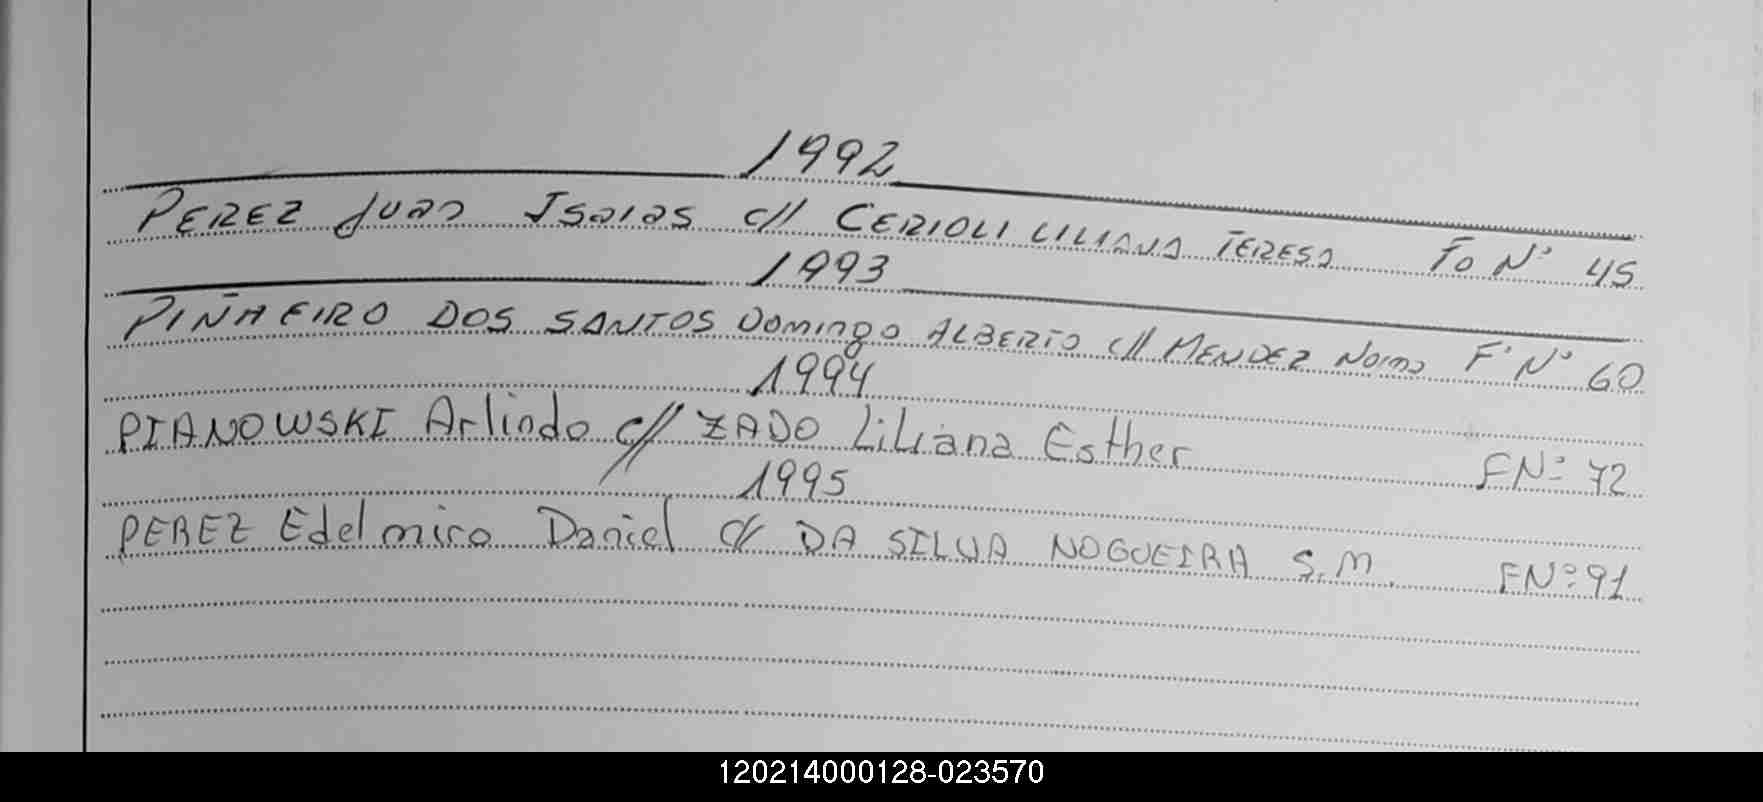 1992
PEREZ Juan Isaias c// CERIOLI LILIANA TERESA Fo Nº 45
1993
PIÑHEIRO DOS SANTOS Domingo ALBERTO c// MENDEZ Norma Fº Nº 60
1994
PIANOWSKI Arlindo c// ZADO Liliana Esther F Nº 72
1995
PEREZ Edelmiro Daniel c/ DA SILVA NOGUEIRA S.M. F Nº 91
120214000128-023570